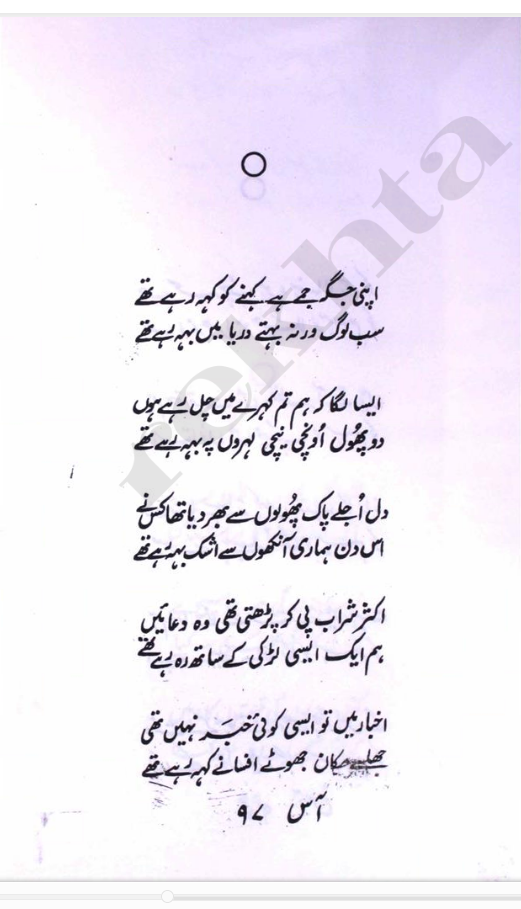 rekhta
اپنی جگہ جمے ہیں کہنے کو کہہ رہے تھے
سب لوگ ورنہ بہتے دریا میں بہہ رہے تھے
ایسا لگا کہ ہم تم کہرے میں چل رہے ہوں
دو پھُول اُونچی نیچی لہروں پہ بہہ رہے تھے
دل اُجلے پاک پھُولوں سے بھر دیا تھا کس نے
اس دن ہماری آنکھوں سے اشک بہہ رہے تھے
اکثر شراب پی کر پڑھتی تھی وہ دعائیں
ہم ایک ایسی لڑکی کے ساتھ رہ رہے تھے
اخبار میں تو ایسی کوئی خبر نہیں تھی
مکان جھوٹے افسانے کہہ رہے تھے
آس ۹۷